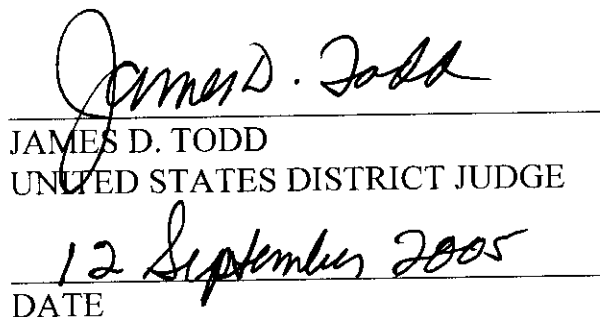 James D. Todd
JAMES D. TODD
UNITED STATES DISTRICT JUDGE
12 September 2005
DATE